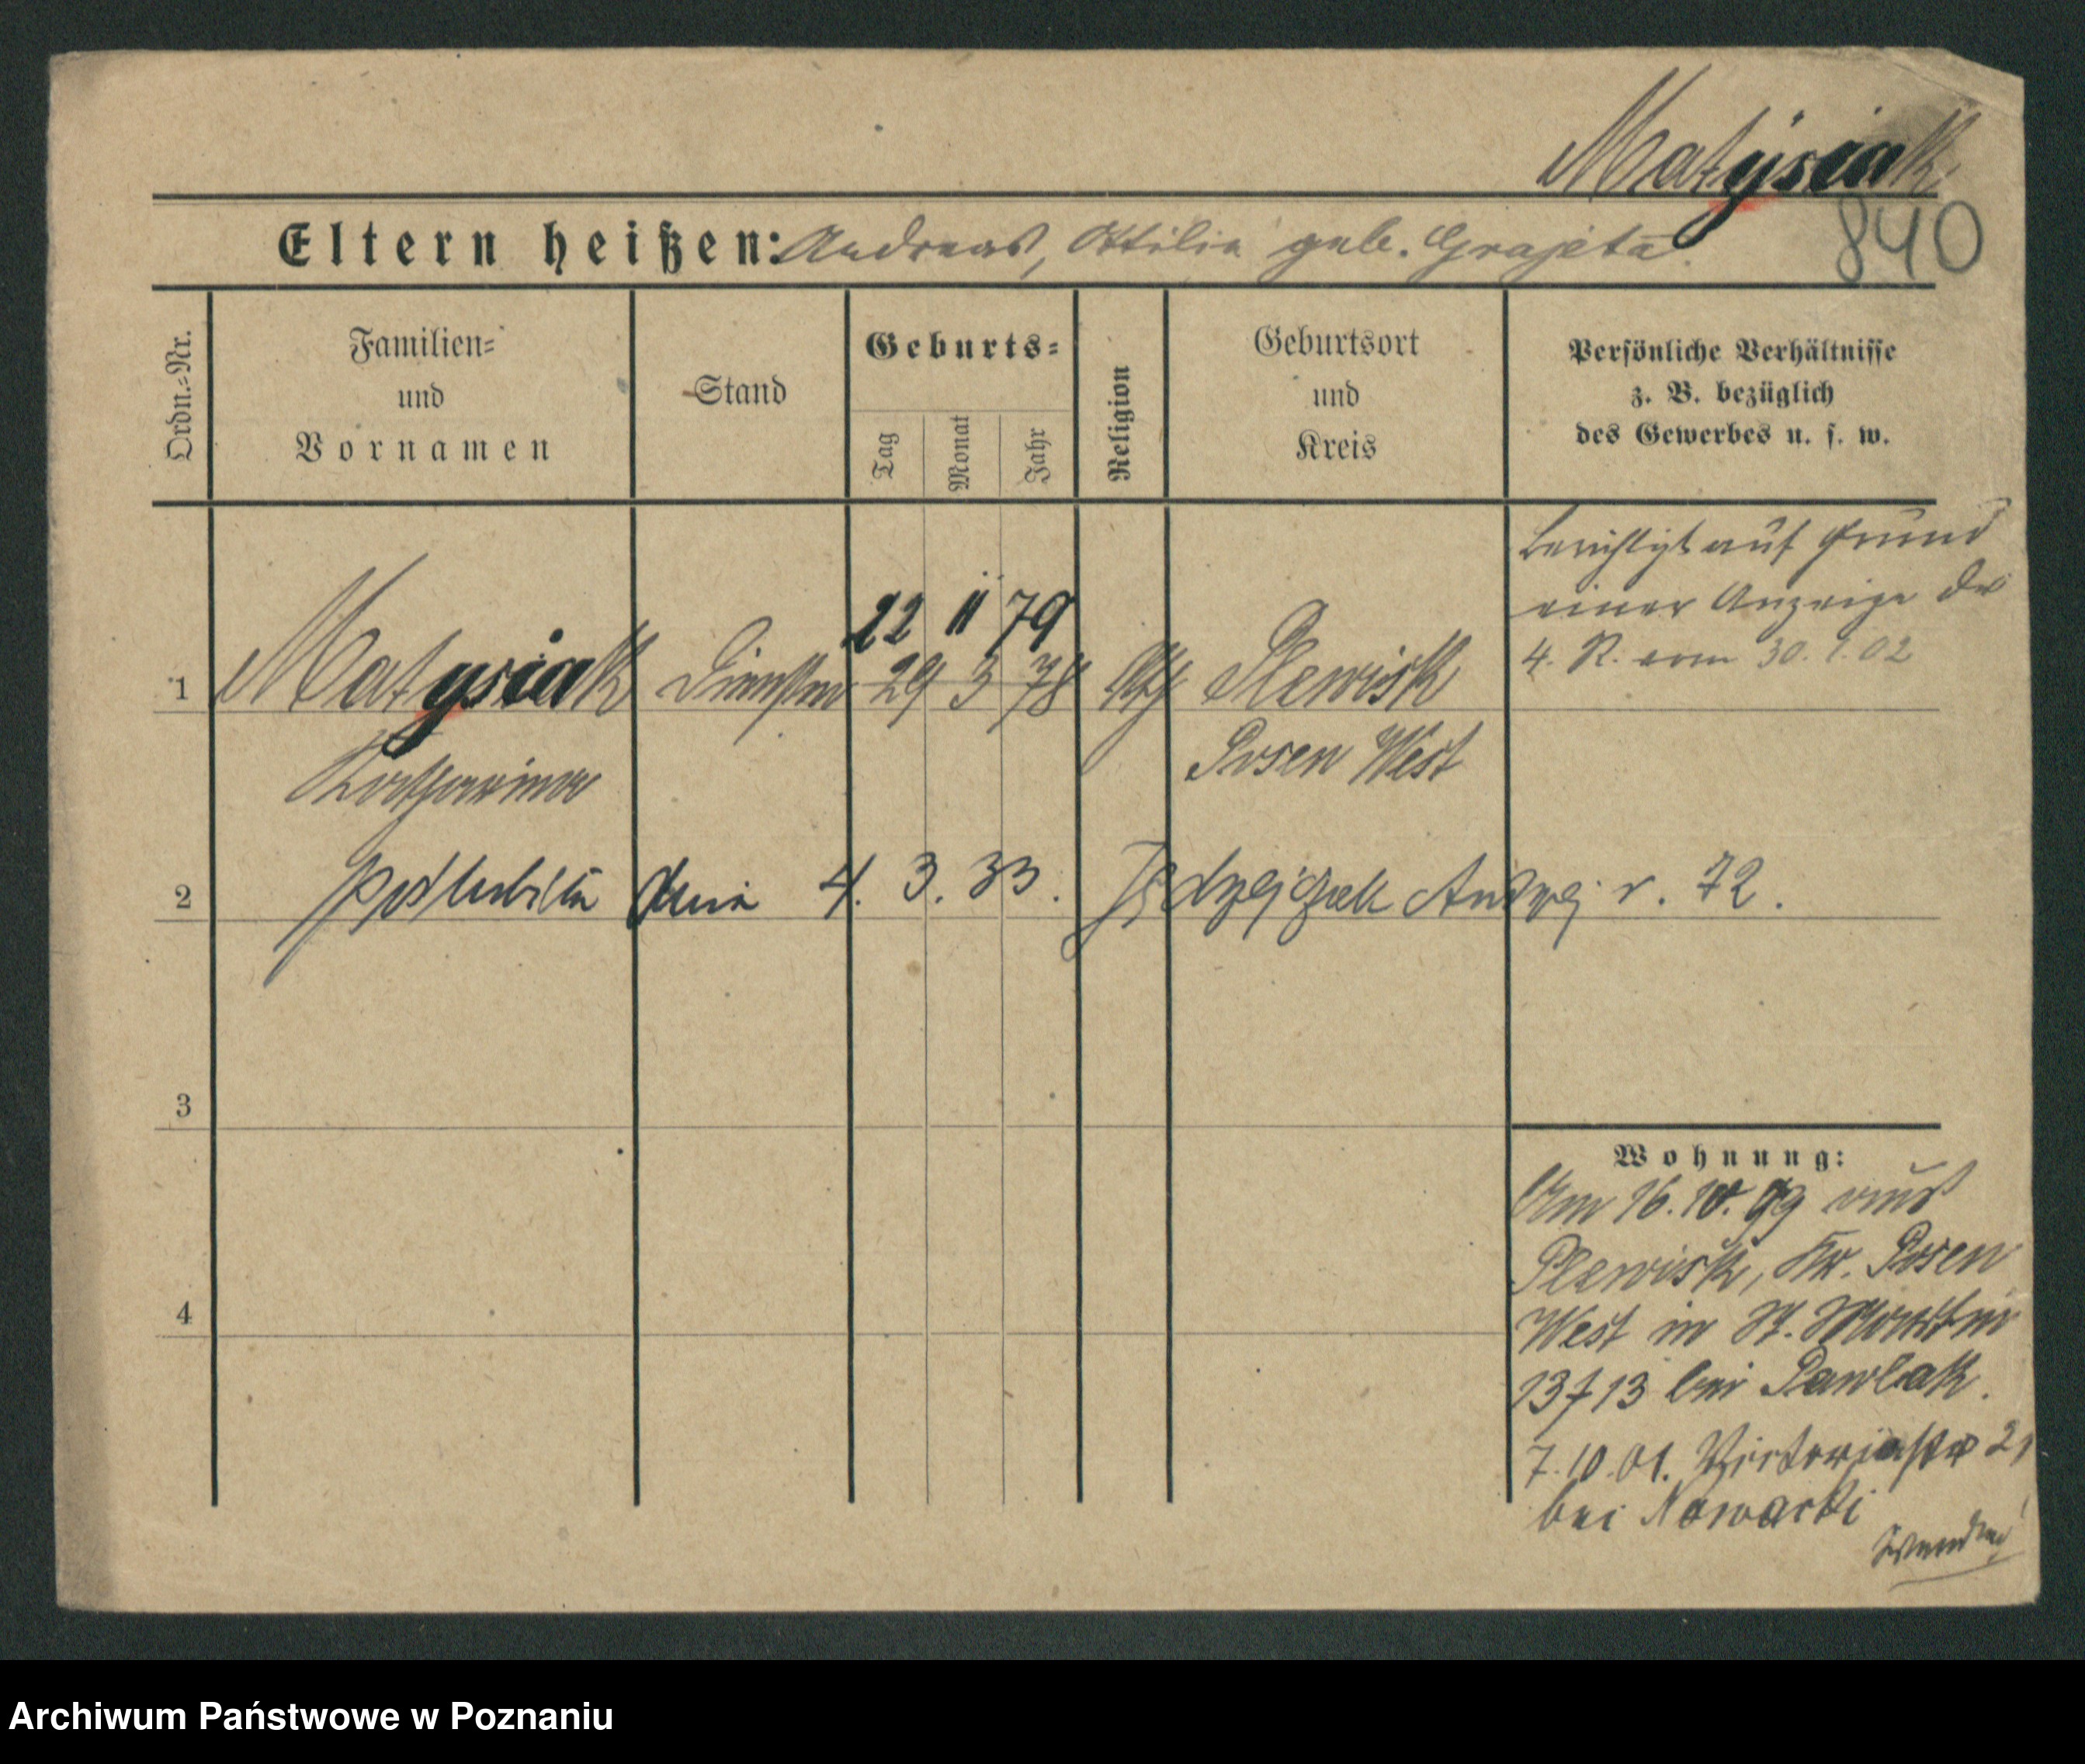 Matysiak
840
Eltern heißen: Andreas, Ottilie geb. Grajeta.
Ordn.=Nr.
Familien=
und
Vornamen
Stand
Geburts=
Tag
Monat
Jahr
Religion
Geburtsort
und
Kreis
Persönliche Verhältnisse
z. B. bezüglich
des Gewerbes u. s. w.
berichtigt auf Grund
einer Anzeige des
4. R. vom 30. 1. 02
22 11 79
1 Matysiak 29 3 78 Plewisk
Katharina Posen West
2 poślubiła dnia 4. 3. 33. Jędrzejczak Andrzej r. 72.
3
4
Wohnung:
Am 16. 10. 99 aus
Plewisk, Kr. Posen
West in St. Martin
13 bei Pawlak.
7. 10. 01. Victoriastr 21
bei Nowacki
Wenden!
Archiwum Państwowe w Poznaniu